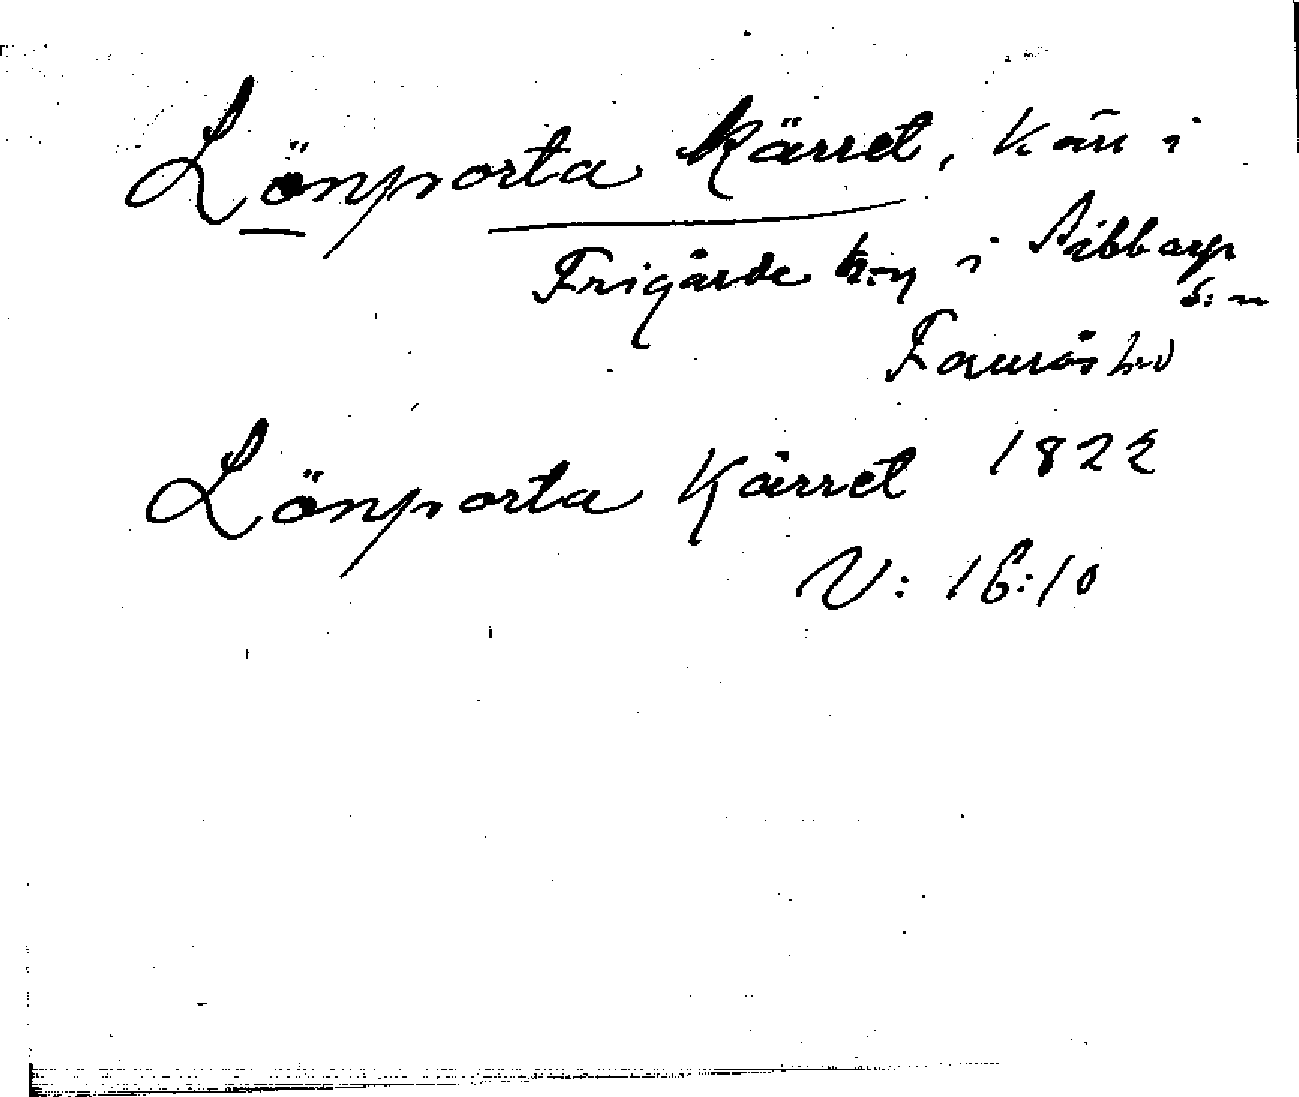 Lönporta kärret, Kärr i
Frigärde h:y i Ribbarp
s:n
Faurås h:d
Lönporta Kärret 1822
V: 16:10